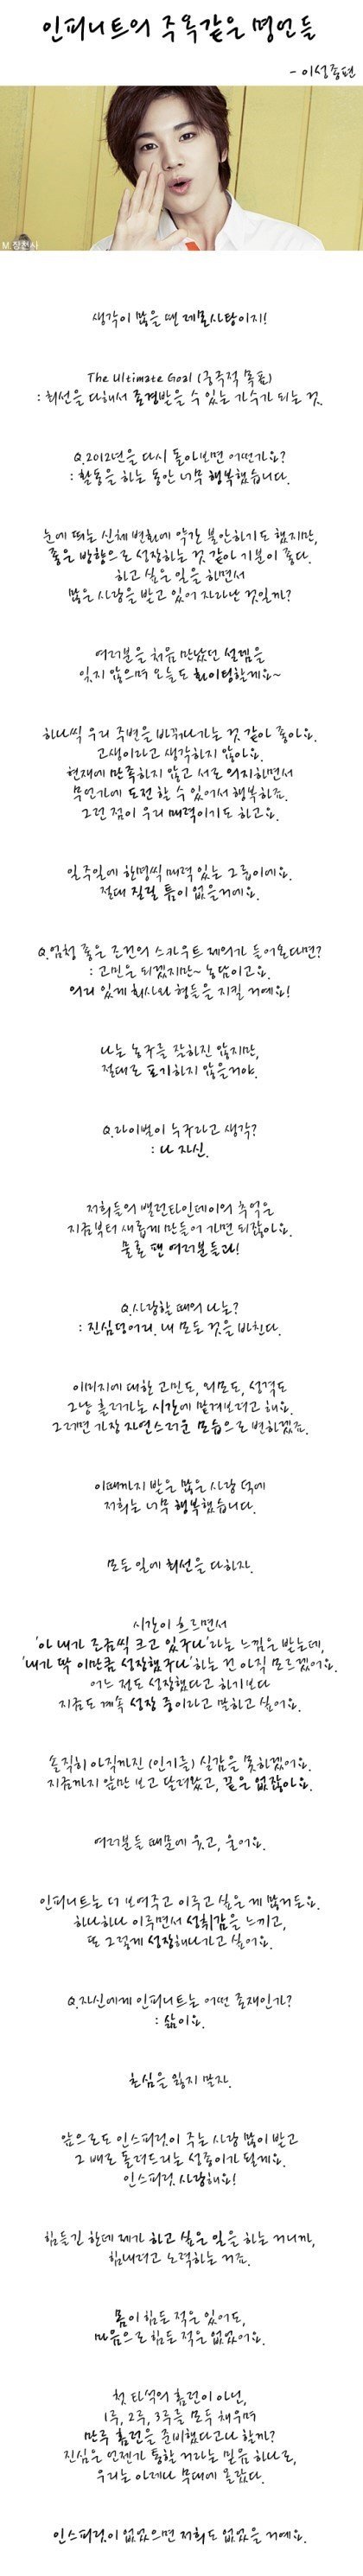 인피니트의 주옥같은 명언들
- 이성종편
M.장천사
생각이 많을 땐 레몬사탕이지!
The Ultimate Goal (궁극적 목표)
: 최선을 다해서 존경받을 수 있는 가수가 되는 것.
Q.2012년을 다시 돌아보면 어떤가요?
: 활동을 하는 동안 너무 행복했습니다.
눈에 띄는 신체 변화에 약간 불안하기도 했지만,
좋은 방향으로 성장하는 것 같아 기분이 좋다.
하고 싶은 일을 하면서
많은 사랑을 받고 있어 자라난 것일까?
여러분을 처음 만났던 설렘을
잊지 않으며 오늘도 화이팅할게요~
하나씩 우리 주변을 바꿔나가는 것 같아 좋아요.
고생이라고 생각하지 않아요.
현재에 만족하지 않고 서로 의지하면서
무언가에 도전 할 수 있어서 행복하죠.
그런 점이 우리 매력이기도 하고요.
일주일에 한명씩 매력 있는 그룹이에요.
절대 질릴 틈이 없을거예요.
Q.엄청 좋은 조건의 스카우트 제의가 들어온다면?
: 고민은 되겠지만~ 농담이고요.
의리 있게 회사와 형들을 지킬 거예요!
나는 농구를 잘하진 않지만,
절대로 포기하지 않을거야.
Q.라이벌이 누구라고 생각?
: 나 자신.
저희들의 밸런타인데이의 추억은
지금부터 새롭게 만들어 가면 되잖아요.
물론 팬 여러분들과!
Q.사랑할 때의 나는?
: 진심덩어리. 내 모든 것을 바친다.
이미지에 대한 고민도, 외모도, 성격도
그냥 흘러가는 시간에 맡겨보려고 해요.
그러면 가장 자연스러운 모습으로 변하겠죠.
이때까지 받은 많은 사랑 덕에
저희는 너무 행복했습니다.
모든 일에 최선을 다하자.
시간이 흐르면서
'아 내가 조금씩 크고 있구나'라는 느낌은 받는데,
'내가 딱 이만큼 성장했구나'하는 건 아직 모르겠어요.
어느 정도 성장했다고 하기보다
지금도 계속 성장 중이라고 말하고 싶어요.
솔직히 아직까진 (인기를) 실감을 못하겠어요.
지금까지 앞만 보고 달려왔고, 끝은 없잖아요.
여러분들 때문에 웃고, 울어요.
인피니트는 더 보여주고 이루고 싶은 게 많거든요.
하나하나 이루면서 성취감을 느끼고,
또 그렇게 성장해나가고 싶어요.
Q.자신에게 인피니트는 어떤 존재인가?
: 삶이요.
초심을 잃지 말자.
앞으로도 인스피릿이 주는 사랑 많이 받고
그 배로 돌려드리는 성종이가 될게요.
인스피릿 사랑해요!
힘들긴 한데 제가 하고 싶은 일을 하는 거니까,
힘내려고 노력하는 거죠.
몸이 힘든 적은 있어도,
마음으로 힘든 적은 없었어요.
첫 타석의 홈런이 아닌,
1루, 2루, 3루를 모두 채우며
만루 홈런을 준비했다고나 할까?
진심은 언젠가 통할 거라는 믿음 하나로,
우리는 아레나 무대에 올랐다.
인스피릿이 없었으면 저희도 없었을 거예요.